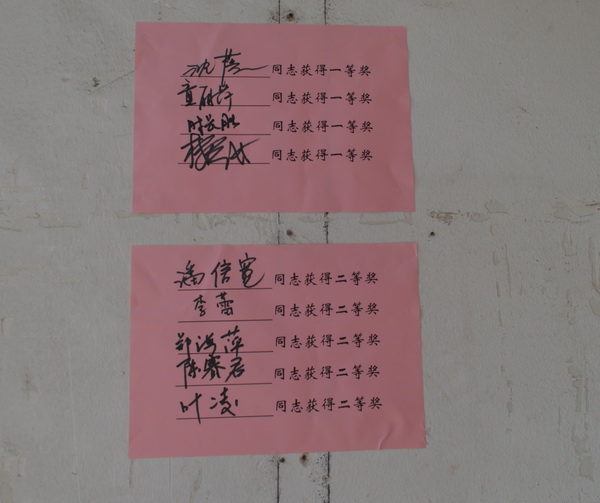 沈 同志获得一等奖
童 同志获得一等奖
时 胜 同志获得一等奖
杨 同志获得一等奖
潘信宽 同志获得二等奖
李蕾 同志获得二等奖
郑海萍 同志获得二等奖
陈赛君 同志获得二等奖
叶凌 同志获得二等奖